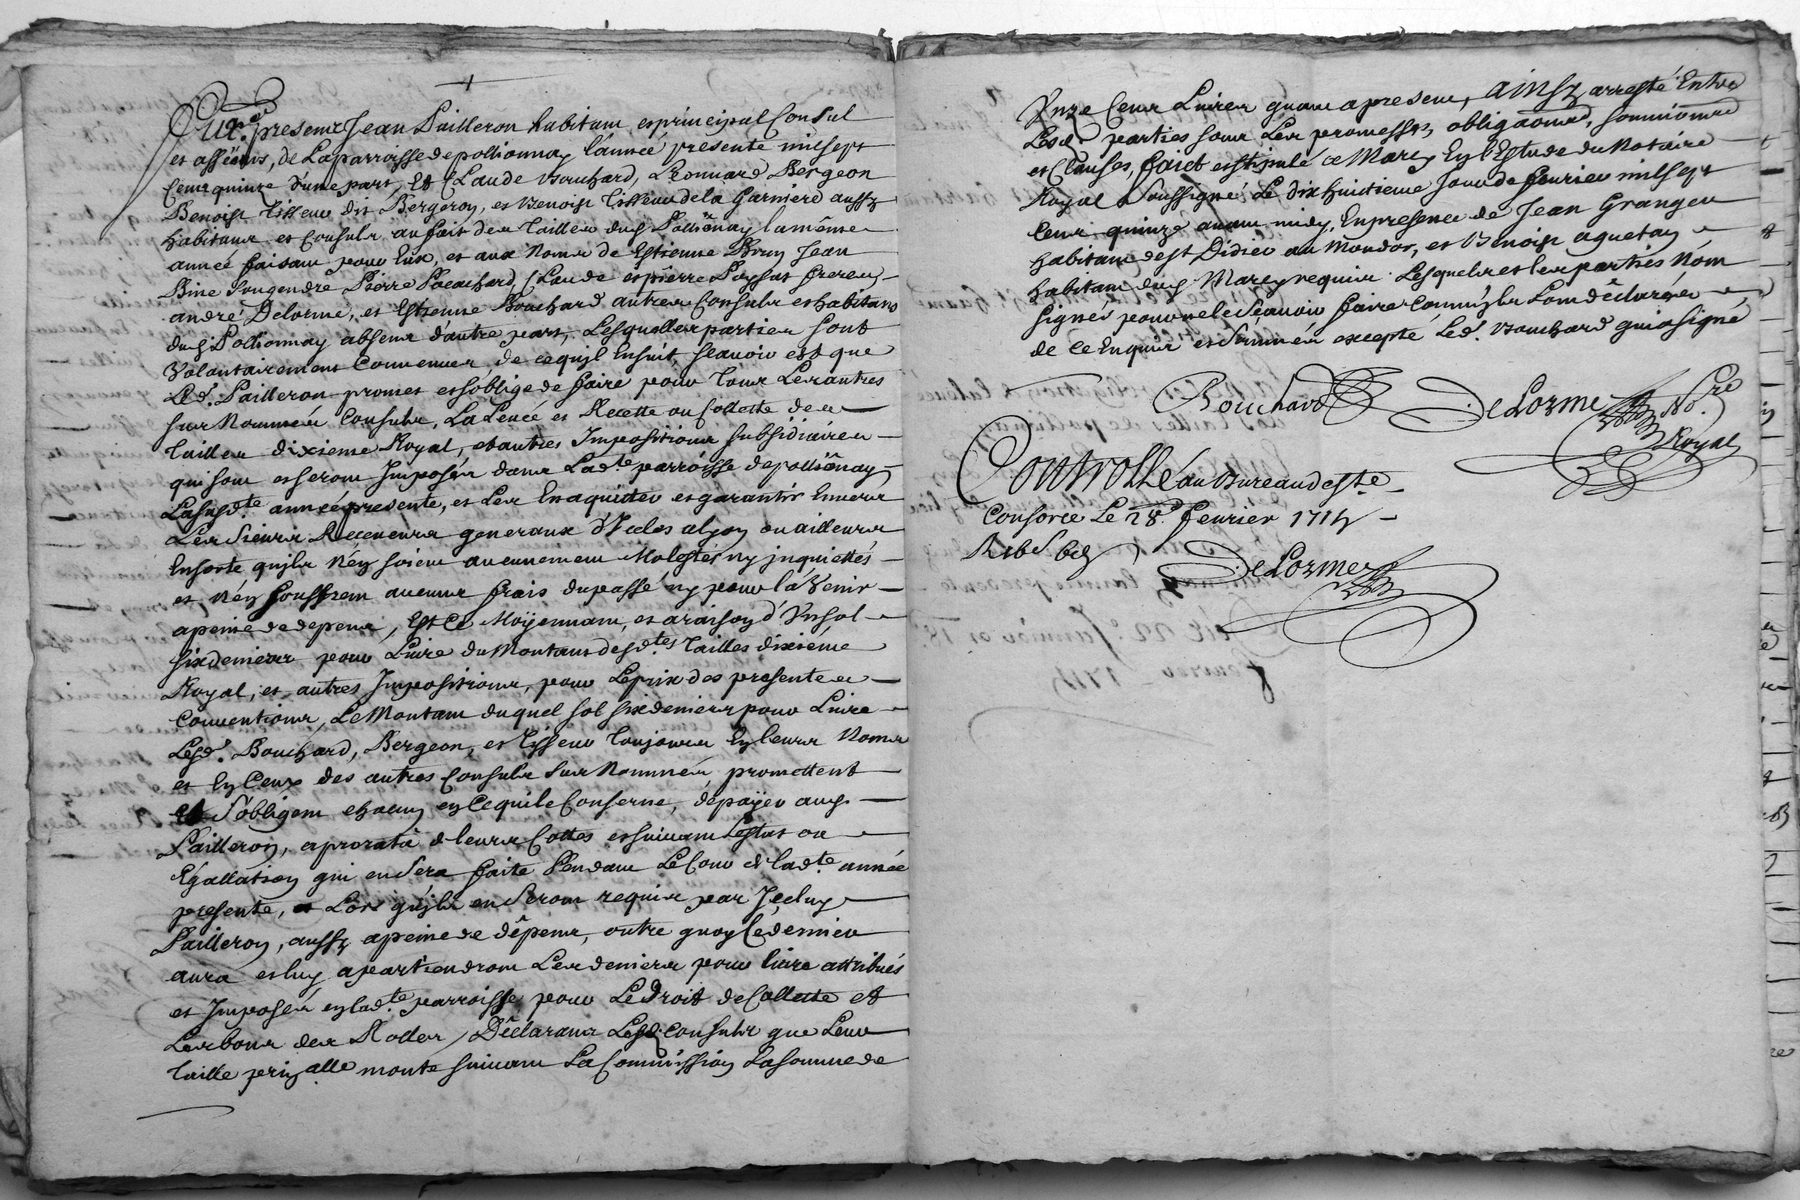 Furent presents Jean Pailleron habitant et principal Consul
et asséeurs, de La parroisse de pollionnay l'année presente mil sept
Cent quinze d'une part, Et Claude Bouchard, Leonnard Bergeon
Benoist Tisseur dit Bergeron, et Benoist Tisseur de la Garniere aussy
habitants et Consuls au fait des Tailles dud. Pollionay la même
année faisant pour Eux, et aux Noms de Estienne Brun Jean
Bine Son gendre Pierre Pocachard, Claude et pierre Poysat freres
andré Delorme, et Estienne Bouchard autres Consuls et habitans
dud. Pollionnay absents d'autre part, Lesquelles parties sont
Volontairement Convenues, de ce qu'jl Ensuit scauoir est que
Led. Pailleron promet et soblige de faire pour Tous Les autres
sus Nommés Consuls, La Leuée et Recette ou Collecte des
Tailles dixieme Royal, et autres Impositions subsidiaires
qui sont et seront Imposées dans Lad.te parroisse de pollionay
La susd.te année presente, et Les En aquitter et garantir Enuers
Les Sieurs Receueurs generaux d'Icelles a lyon ou ailleurs
Ensorte qu'jls N'en soient aucunement Molestés ny jnquiettés
et N'en souffrent aucuns frais du passé ny pour l'aVenir
apeine de depens, Et Ce Moÿennant, et a raison d'Un sol
six deniers pour Liure du Montant desd.tes Tailles dixiéme
Royal, et autres Impositions, pour Le prix des presentes
Conuentions, Le Montant duquel sol six deniers pour Liure
Lesd. Bouchard, Bergeon, et Tisseur Toujours En leurs Noms
et En Ceux des autres Consuls sus Nommés promettent
et s'obligent chacun en Ce qui le Conserne, de païer aud.
Pailleron, a prorata de leurs Cottes et suiuant L'estat ou
Egallation qui en Sera faite Pendant Le Cour de lad.te année
presente, et Lors qu'jls en Seront requis par Jceluy
Pailleron, aussy a peine de dêpens, outre quoy Ce dernier
aura et luy apartiendront Les deniers pour liure attribués
et Imposés en lad.te parroisse pour Le Droit de Collecte et
Les bons des Rolles, Déclarants Lesd. Consuls que Leur
Taille prinsalle monte suiuant La Commission La somme de
Unze Cent Liures quant a present, AINSY arresté Entre
Lesd. parties sous Les promesses, obligaõns, soumiõns
et Clauses, faict et stipulé a Marcy En l'Estude du Notaire
Royal Soussigné Le dix huictieme Jour de feurier mil sept
Cent quinze auant midy, En presence de Jean Granger
habitant de S.t Didier au Mondor, et Benoist aguetan
habitant dud. Marcy requis. Lesquels et les parties N'ont
signés pour ne le Sçauoir faire Comm'jls L'ont déclarés
de Ce Enquis et Sommés excepté Led. Bouchard qui a signé
Bouchard DeLorme No.re
Royal
Controllé au Bureau de S.te
Consorce Le 28.e feurier 1715
DeLorme